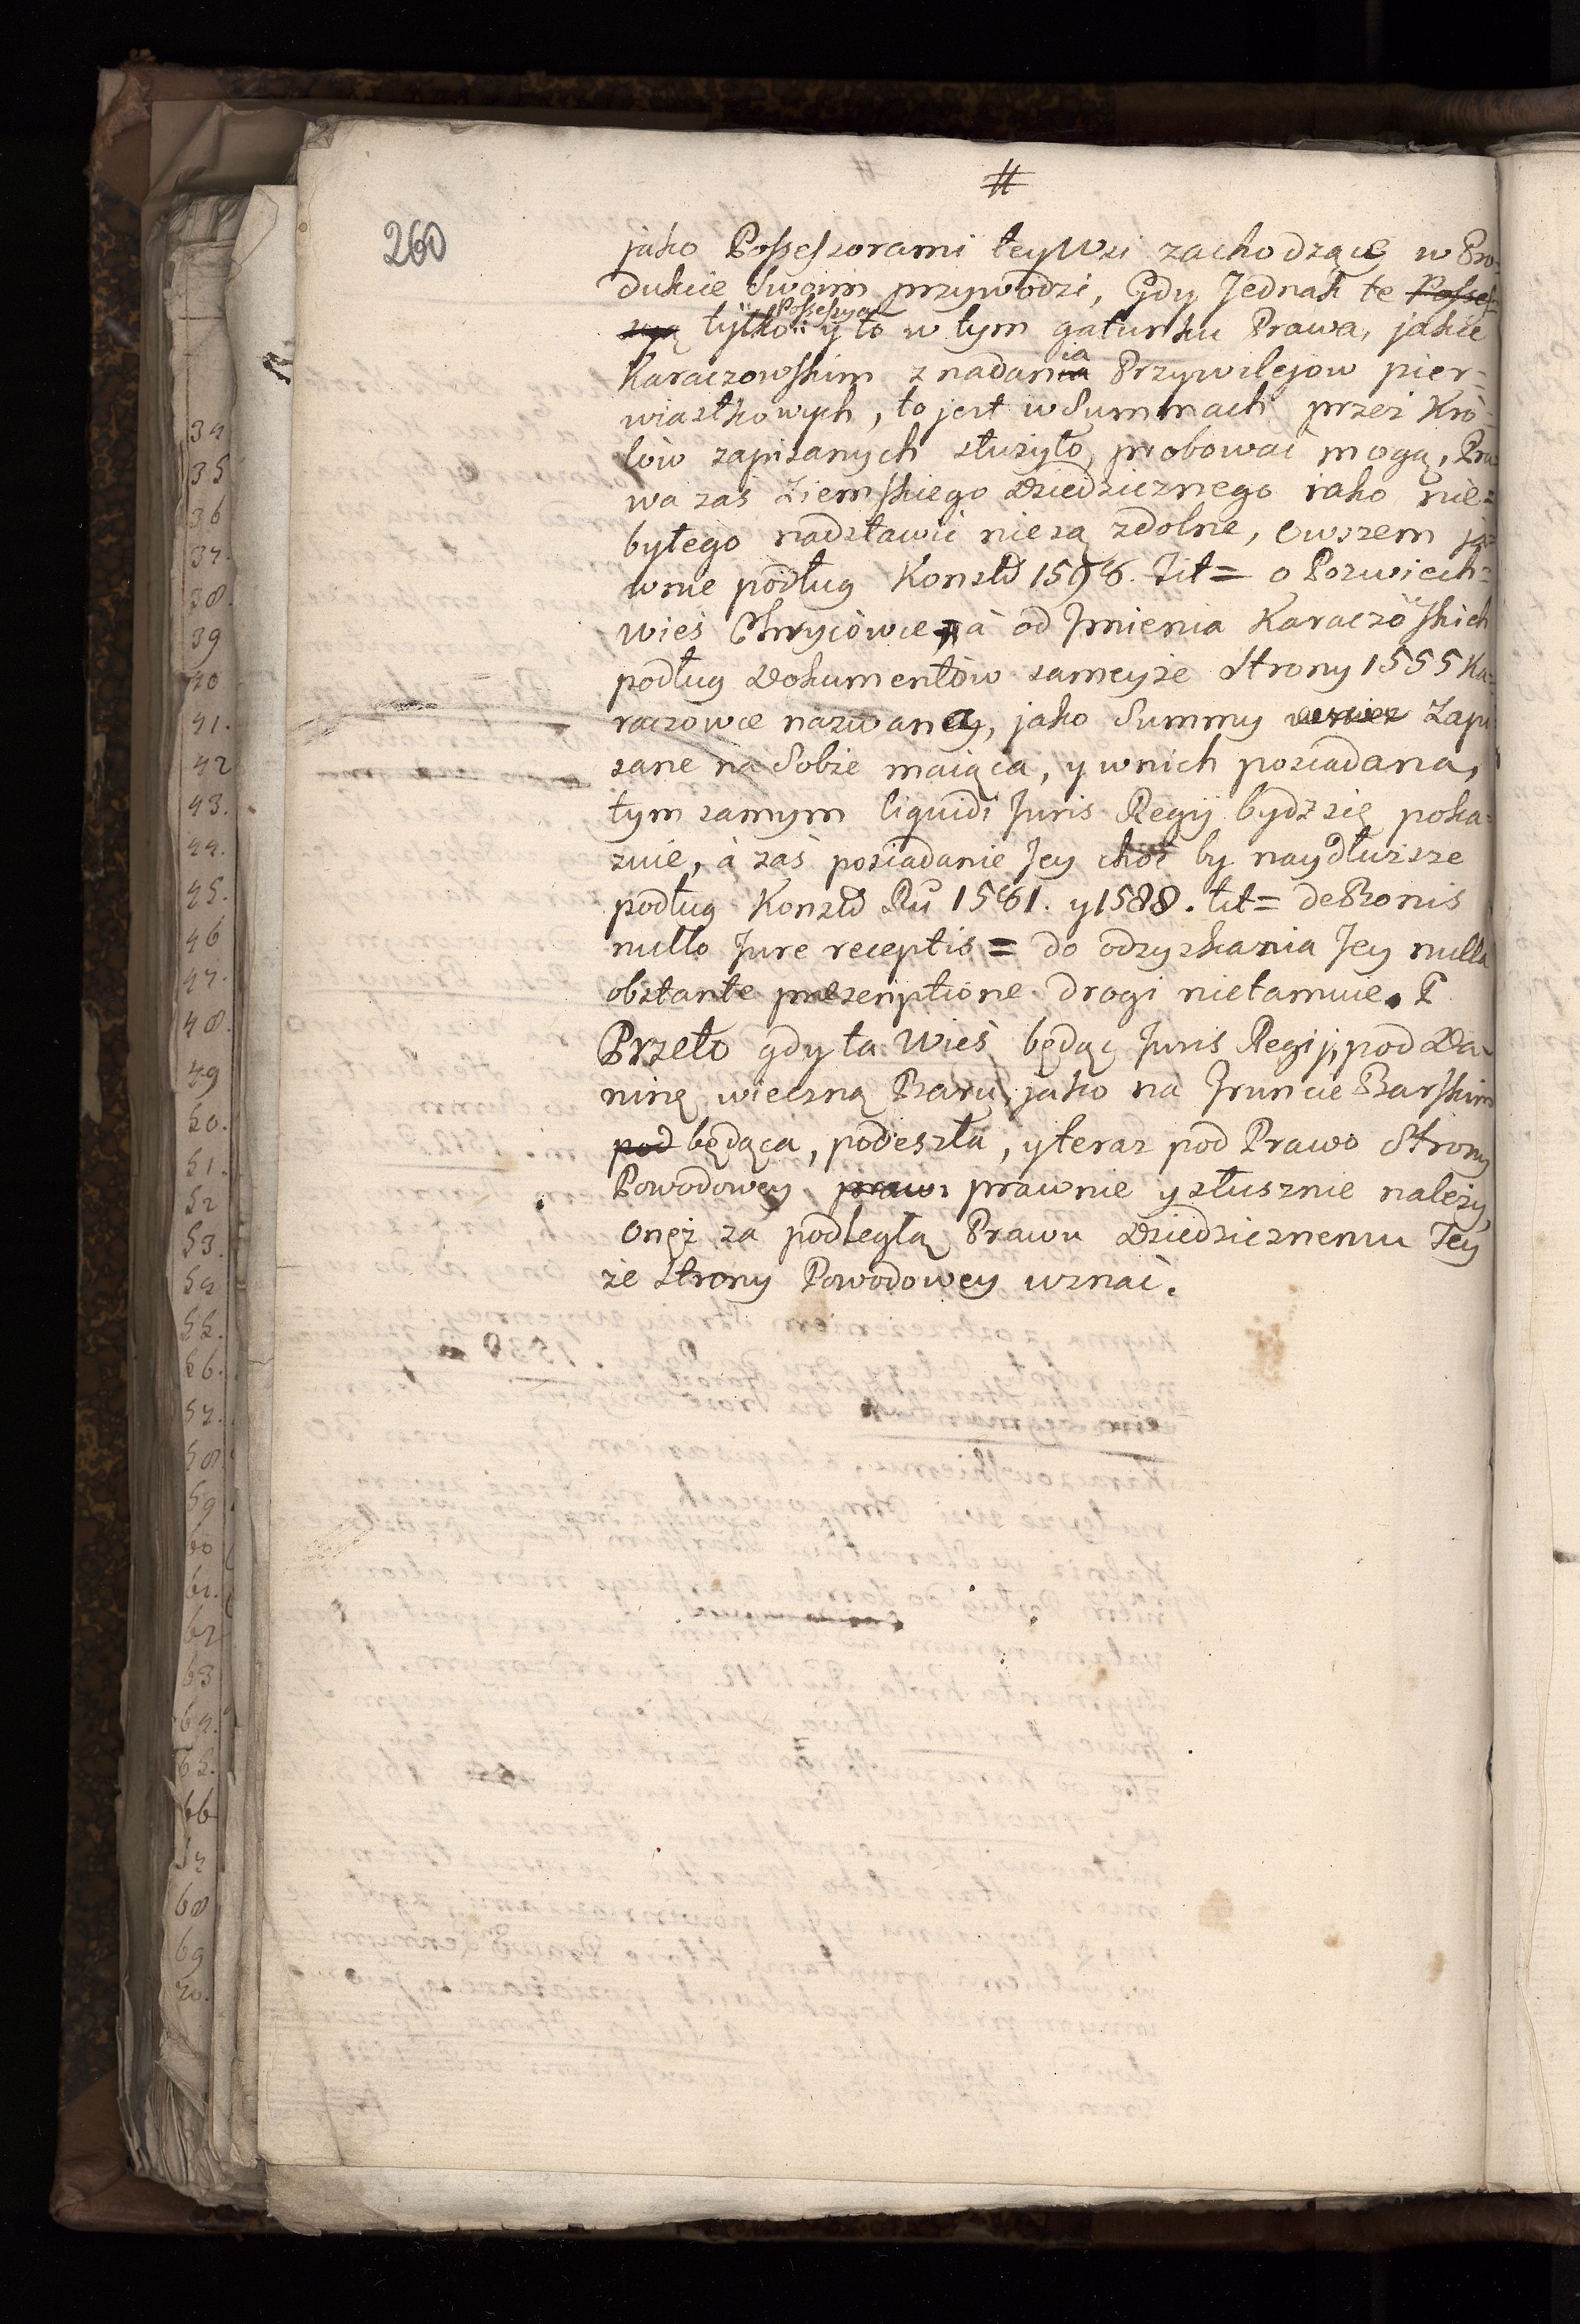 #
260
jako Possessorami teyWsi zachodzące w Pro=
dukcie Swoim przywodzi, Gdy Jednak te Posses=
syą tylko Possessyą y to w tym gatunku Prawa, jakie
Karaczowskim z nadania ia Przywilejow pier=
wiastkowych, to jest w Summach przez Kró=
lów zapisanych służyło, probować mogą, Pra=
wa zaś Ziemskiego Dziedzicznego iako nie=
byłego nadstawić nie są zdolne, owszem ja=
wnie podług Konstd 1596. Tit= o Pozwiech=
wieś Chryćowce à od Jmienia Karaczóskich
podług Dokumentów sameyże Strony 1555 Ka=
raczowce nazwana, jako Summy Zapi
sane na Sobie maiąca, y wnich posiadana,
tym samym liquidi Juris Regij bydz się poka=
zuie, à zaś posiadanie Jey choć by naydłuższe
podług Konstd Ru 1561. y 1588. tit= de Bonis
nullo Jure receptis = do odzyskania Jey nulla
obstante prescriptione drogi nietamuie.
Przeto gdy ta Wieś będąc Juris Regij, pod Da=
ninę wieczną Baru, jako na Gruncie Barskim
pod będąca, podeszła, y teraz pod Prawo Strony
Powodowey prawi prawnie y słusznie należy,
Onęż za podległą Prawu Dziedzicznemu Tey
że Strony Powodowey uznać.
34
35
36
37.
38.
39
40
41.
42
43.
44.
45.
46
47.
48.
49
50.
51.
52
53.
54
55.
56.
57.
58
59
60
61.
62
63
64.
65.
66
67
68
69
70.